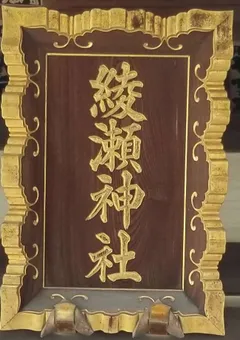 綾瀬神社